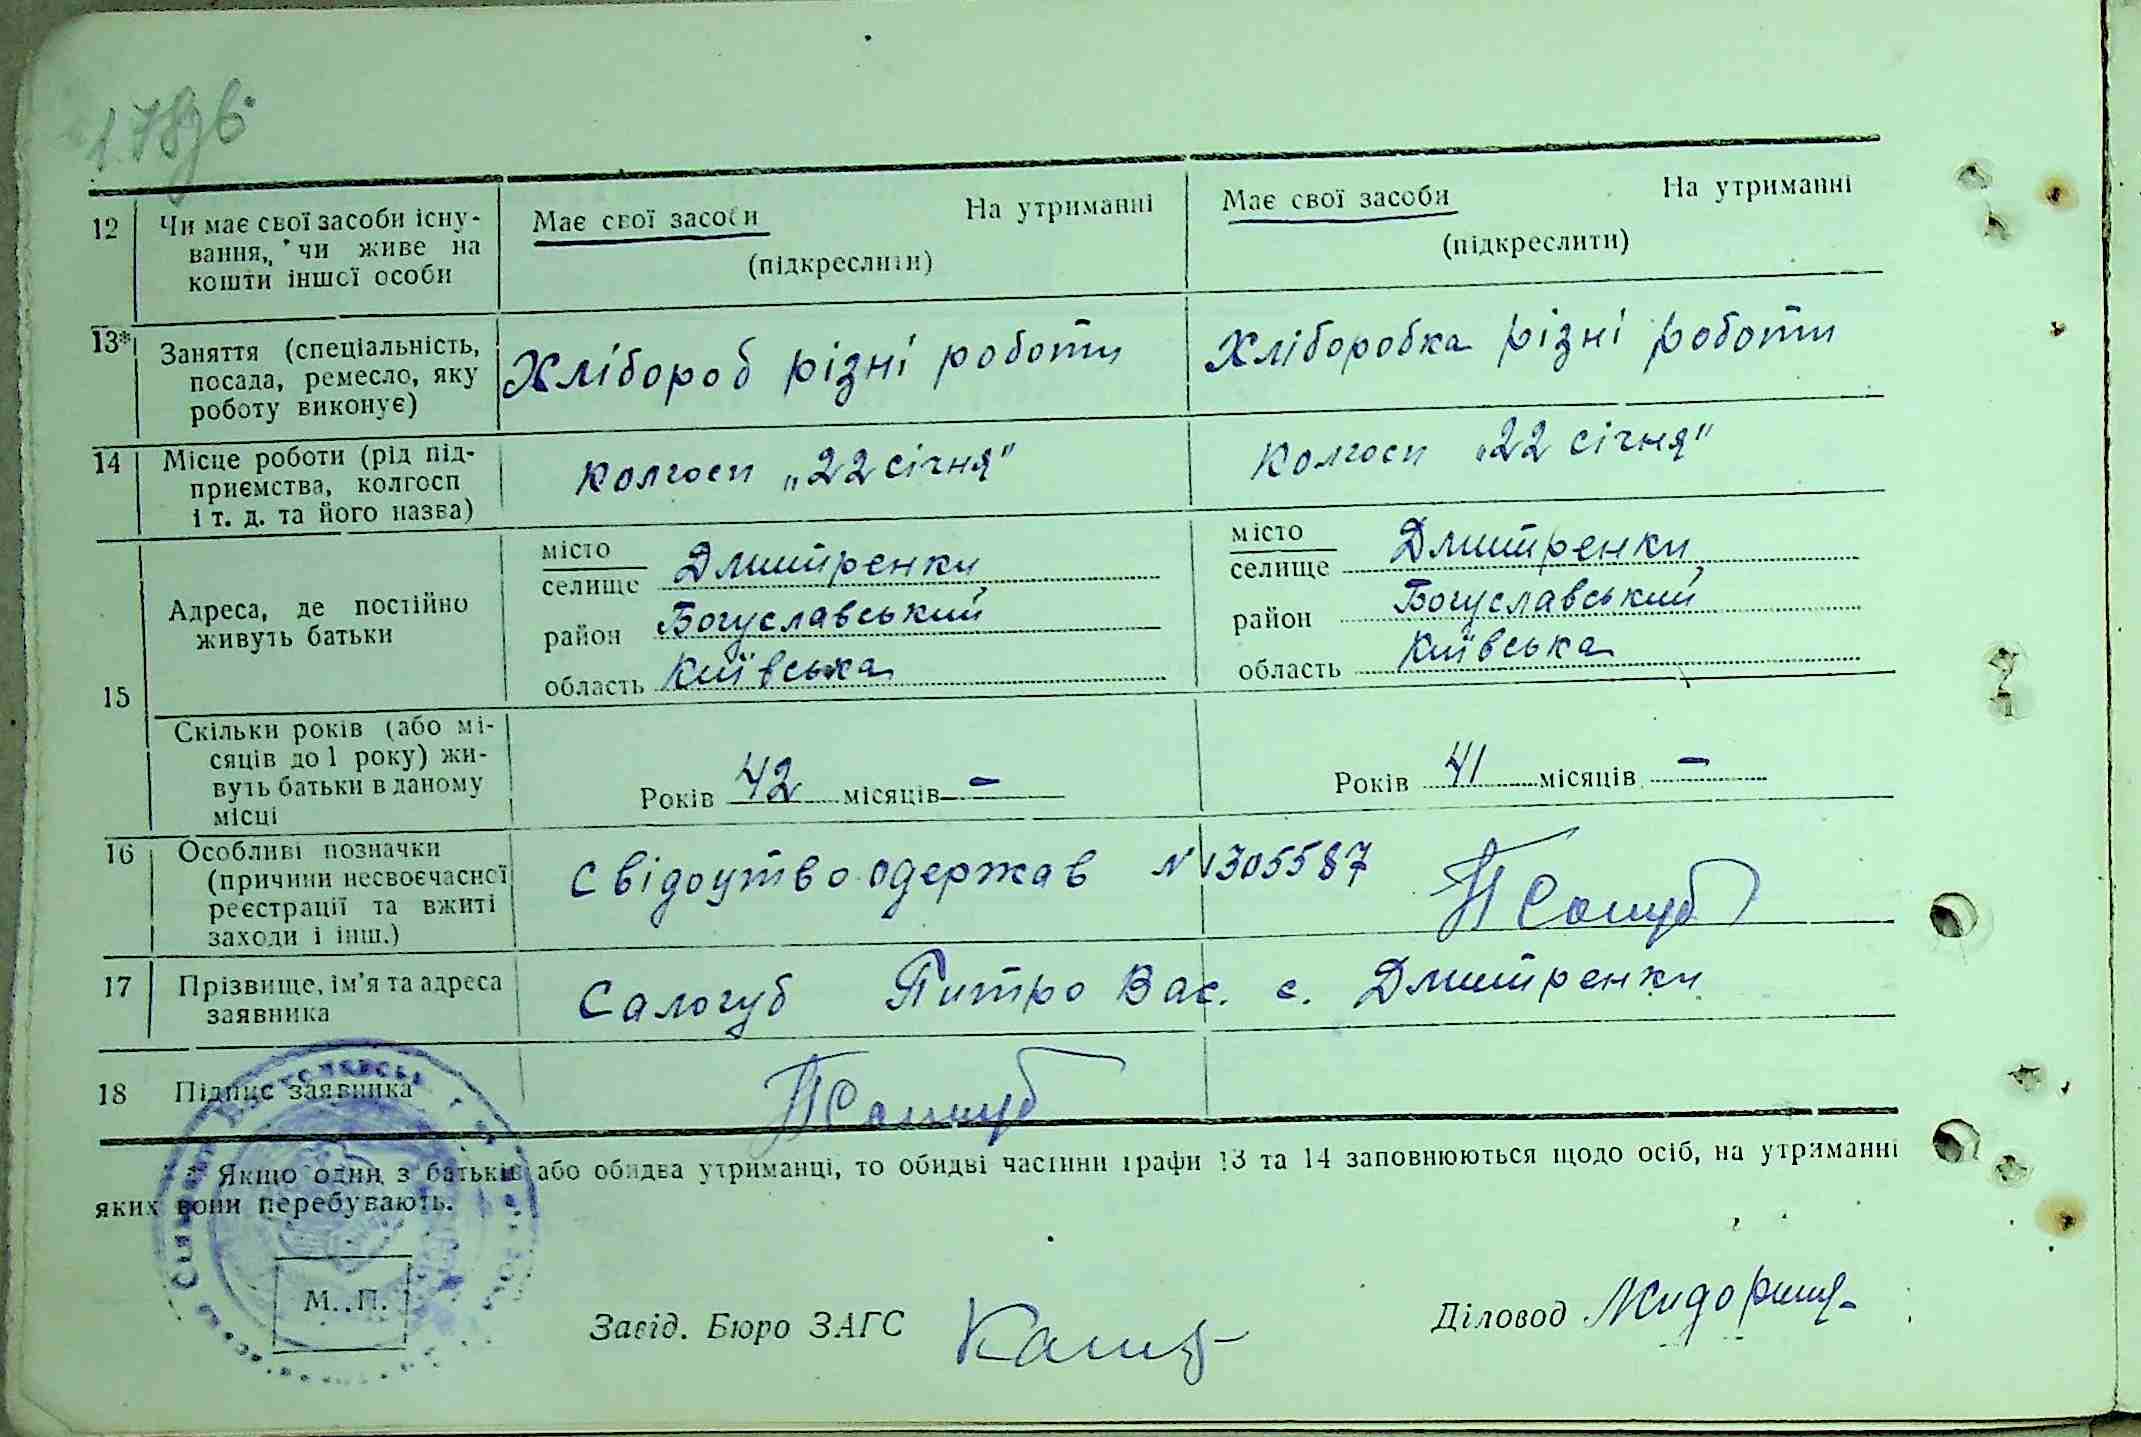 178зв
12 Чи має свої засоби існу-
вання, чи живе на
кошти іншої особи
Має свої засоби На утриманні
(підкреслити)
Має свої засоби На утриманні
(підкреслити)
13* Заняття (спеціальність,
посада, ремесло, яку
роботу виконує)
Хлібороб різні роботи
Хліборобка різні роботи
14 Місце роботи (рід під-
приємства, колгосп
і т. д. та його назва)
Колгосп „22 січня"
Колгосп „22 січня"
15 Адреса, де постійно
живуть батьки
місто
селище Дмитренки
район Богуславський
область Київська
місто
селище Дмитренки
район Богуславський
область Київська
Скільки років (або мі-
сяців до 1 року) жи-
вуть батьки в даному
місці
Років 42 місяців –
Років 41 місяців –
16 Особливі позначки
(причини несвоєчасної
реєстрації та вжиті
заходи і інш.)
Свідоутво одержав № 1305587
17 Прізвище, ім'я та адреса
заявника
Салогуб Питро Вас. с. Дмитренки
18 Підпис заявника
* Якщо один з батьків або обидва утриманці, то обидві частини графи 13 та 14 заповнюються щодо осіб, на утриманні
яких вони перебувають.
М. П.
Завід. Бюро ЗАГС
Діловод